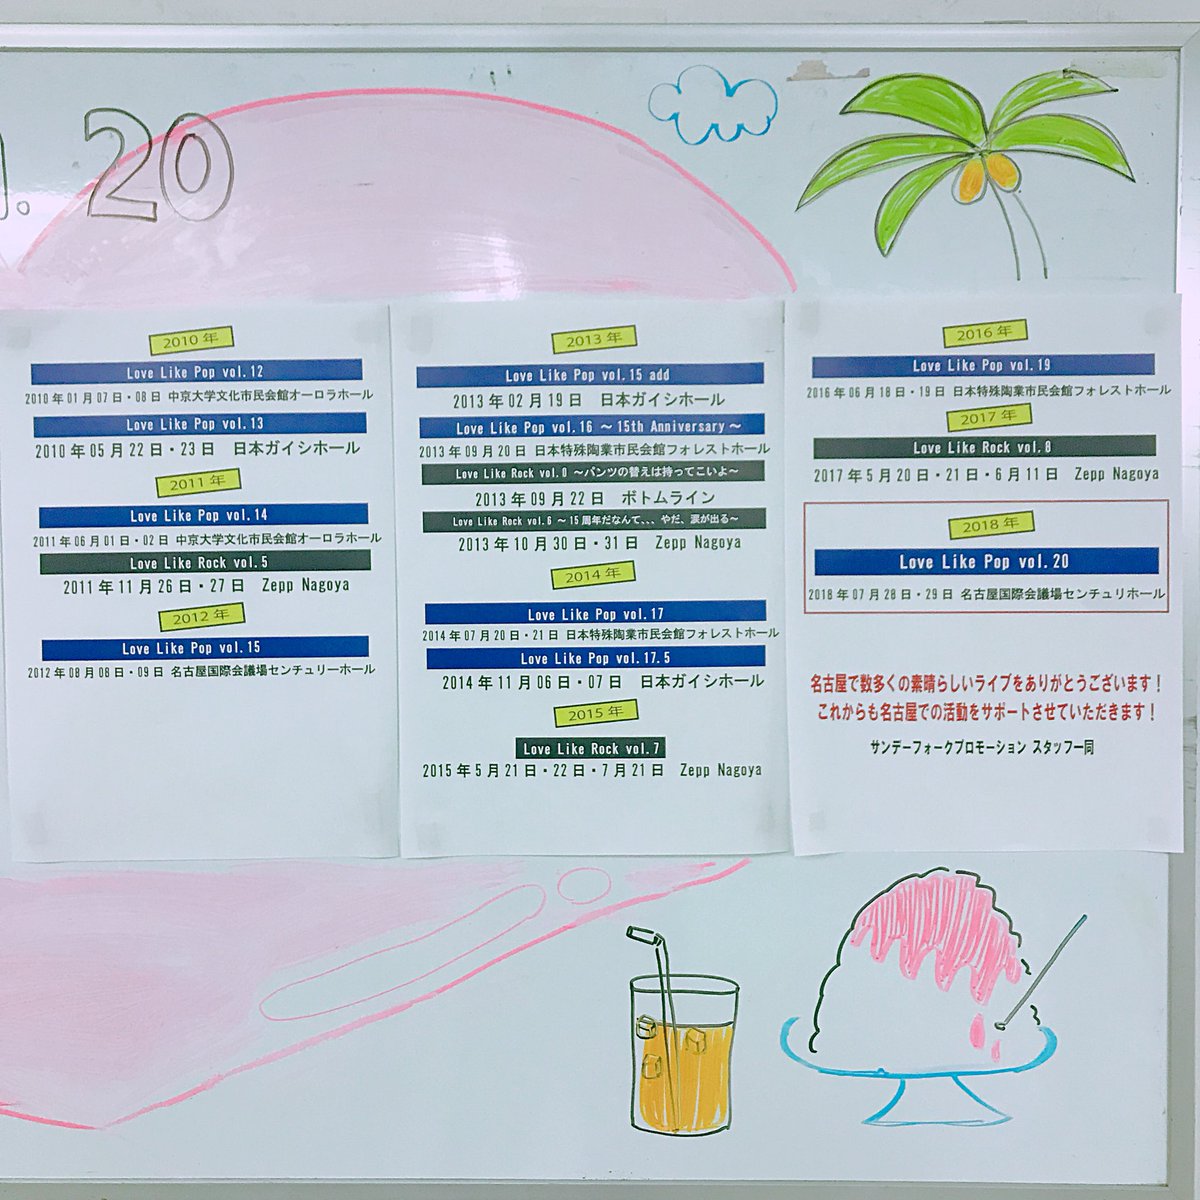 . 20
2010 年
Love Like Pop vol. 12
2010 年 01 月 07 日・08 日 中京大学文化市民会館オーロラホール
Love Like Pop vol. 13
2010 年 05 月 22 日・23 日 日本ガイシホール
2011 年
Love Like Pop vol. 14
2011 年 06 月 01 日・02 日 中京大学文化市民会館オーロラホール
Love Like Rock vol. 5
2011 年 11 月 26 日・27 日 Zepp Nagoya
2012 年
Love Like Pop vol. 15
2012 年 08 月 08 日・09 日 名古屋国際会議場センチュリーホール
2013 年
Love Like Pop vol. 15 add
2013 年 02 月 19 日 日本ガイシホール
Love Like Pop vol. 16 ～ 15th Anniversary ～
2013 年 09 月 20 日 日本特殊陶業市民会館フォレストホール
Love Like Rock vol. 0 ～パンツの替えは持ってこいよ～
2013 年 09 月 22 日 ボトムライン
Love Like Rock vol. 6 ～ 15 周年だなんて、、、やだ、涙が出る～
2013 年 10 月 30 日・31 日 Zepp Nagoya
2014 年
Love Like Pop vol. 17
2014 年 07 月 20 日・21 日 日本特殊陶業市民会館フォレストホール
Love Like Pop vol. 17.5
2014 年 11 月 06 日・07 日 日本ガイシホール
2015 年
Love Like Rock vol. 7
2015 年 5 月 21 日・22 日・7 月 21 日 Zepp Nagoya
2016 年
Love Like Pop vol. 19
2016 年 06 月 18 日・19 日 日本特殊陶業市民会館フォレストホール
2017 年
Love Like Rock vol. 8
2017 年 5 月 20 日・21 日・6 月 11 日 Zepp Nagoya
2018 年
Love Like Pop vol. 20
2018 年 07 月 28 日・29 日 名古屋国際会議場センチュリホール
名古屋で数多くの素晴らしいライブをありがとうございます！
これからも名古屋での活動をサポートさせていただきます！
サンデーフォークプロモーション スタッフ一同